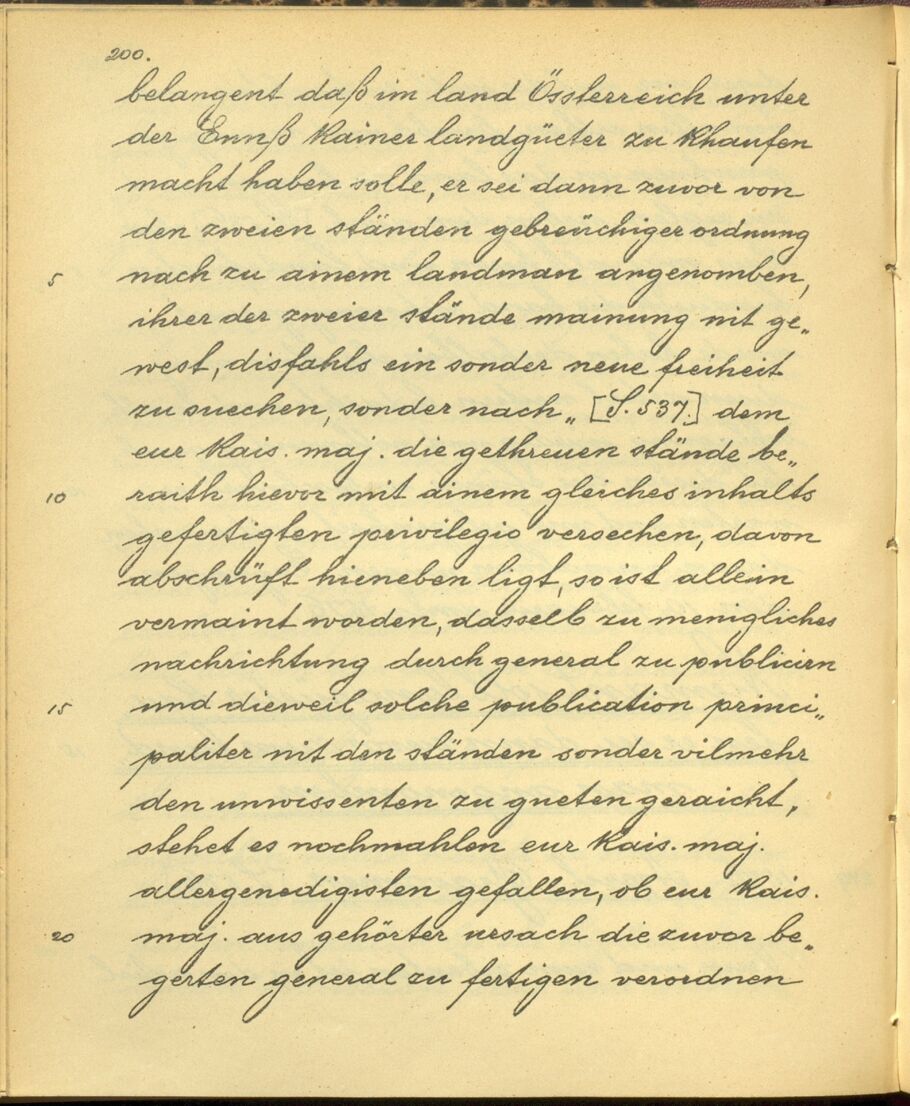 200.
belangent daß im land Össterreich unter
der Ennß kainer landgüeter zu khaufen
macht haben solle, er sei dann zuvor von
den zweien ständen gebreüchiger ordnung
5 nach zu ainem landman angenomben,
ihrer der zweier stände mainung nit ge„
west, disfahls ein sonder neue freiheit
zu suechen, sonder nach„ [S. 537.] dem
eur kais. maj. die gethreuen stände be„
10 raith hievor mit ainem gleiches inhalts
gefertigten privilegio versechen, davon
abschrüft hieneben ligt, so ist allein
vermaint worden, dasselb zu menigliches
nachrichtung durch general zu publicirn
15 und dieweil solche publication princi„
paliter nit den ständen sonder vilmehr
den unwissenten zu gueten geraicht,
stehet es nochmahlen eur kais. maj.
allergenedigisten gefallen, ob eur kais.
20 maj. aus gehörter ursach die zuvor be„
gerten general zu fertigen verordnen